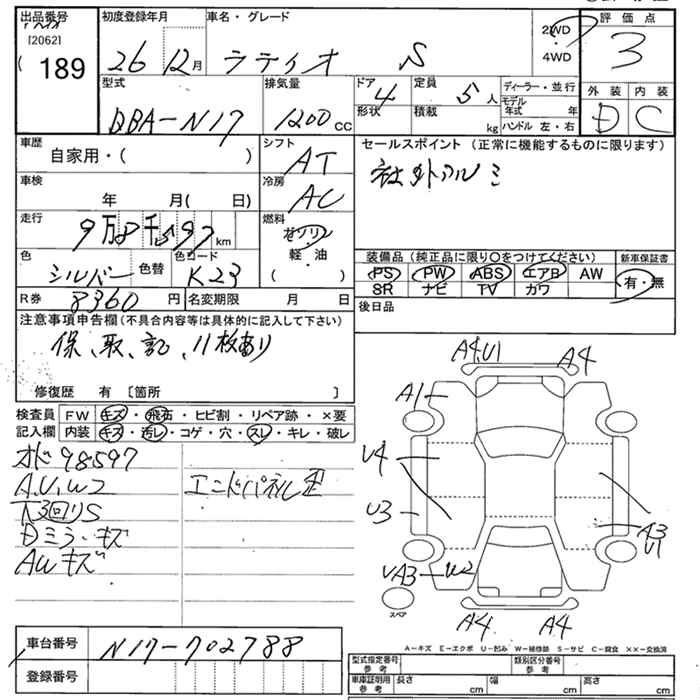 出品番号 初度登録年月 車名・グレード 評価点
[2062]
189 26 12月 ラティオ S 2WD 3
4WD
型式 排気量 ドア 4 定員 5人 ディーラー・並行 外装 内装
DBA-N17 1200cc 形状 積載 kg モデル年式 年 D C
ハンドル 左・右
車歴 シフト セールスポイント (正常に機能するものに限ります)
自家用・( ) AT 社外アルミ
車検 冷房
年 月( 日) AC
走行 燃料
9万8千597km ガソリン
色 色替 色コード 軽・油 装備品(純正品に限り○をつけてください) 新車保証書
シルバー K23 ( ) PS PW ABS エアB AW 有・無
R券 8360円 名変期限 月 日 SR ナビ TV カワ
注意事項申告欄(不具合内容等は具体的に記入して下さい) 後日品
保、取、記、11枚あり
修復歴 有 [箇所 ]
検査員 FW キズ・飛石・ヒビ割・リペア跡・×要
記入欄 内装 キズ・汚レ・コゲ・穴・スレ・キレ・破レ
オド98597
A.U.W2 エンドパネル歪
下3回りS
Dミラーキズ
AWキズ
A4.U1 A4
A1
U4
U3 A3
U1
UA3 W2
スペア
A4 A4
A-キズ E-エクボ U-凹み W-補修跡 S-サビ C-腐食 ××-交換済
車台番号 N17-702788
登録番号
型式指定番号 参考 類別区分番号 参考
車庫証明用 参考 長さ cm 幅 cm 高さ cm